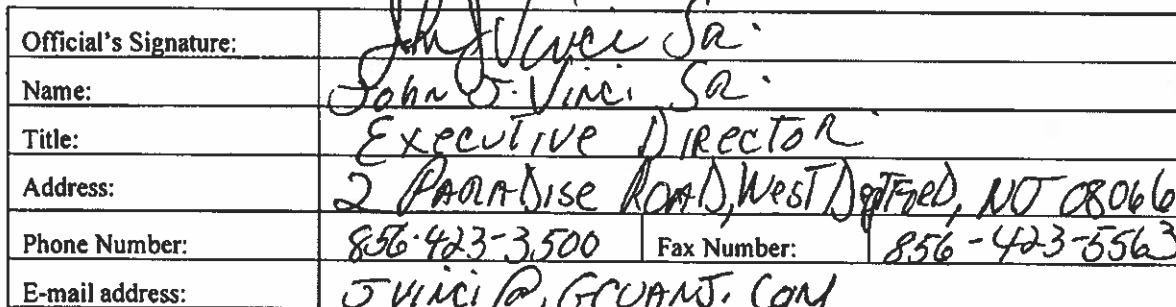 Official's Signature: John J Vinci Sr.
Name: John J. Vinci Sr.
Title: Executive Director
Address: 2 PARADise ROAD, West DeptFord, NJ 08066
Phone Number: 856-423-3500 Fax Number: 856-423-5563
E-mail address: JVINCI@.GCUANJ.COM